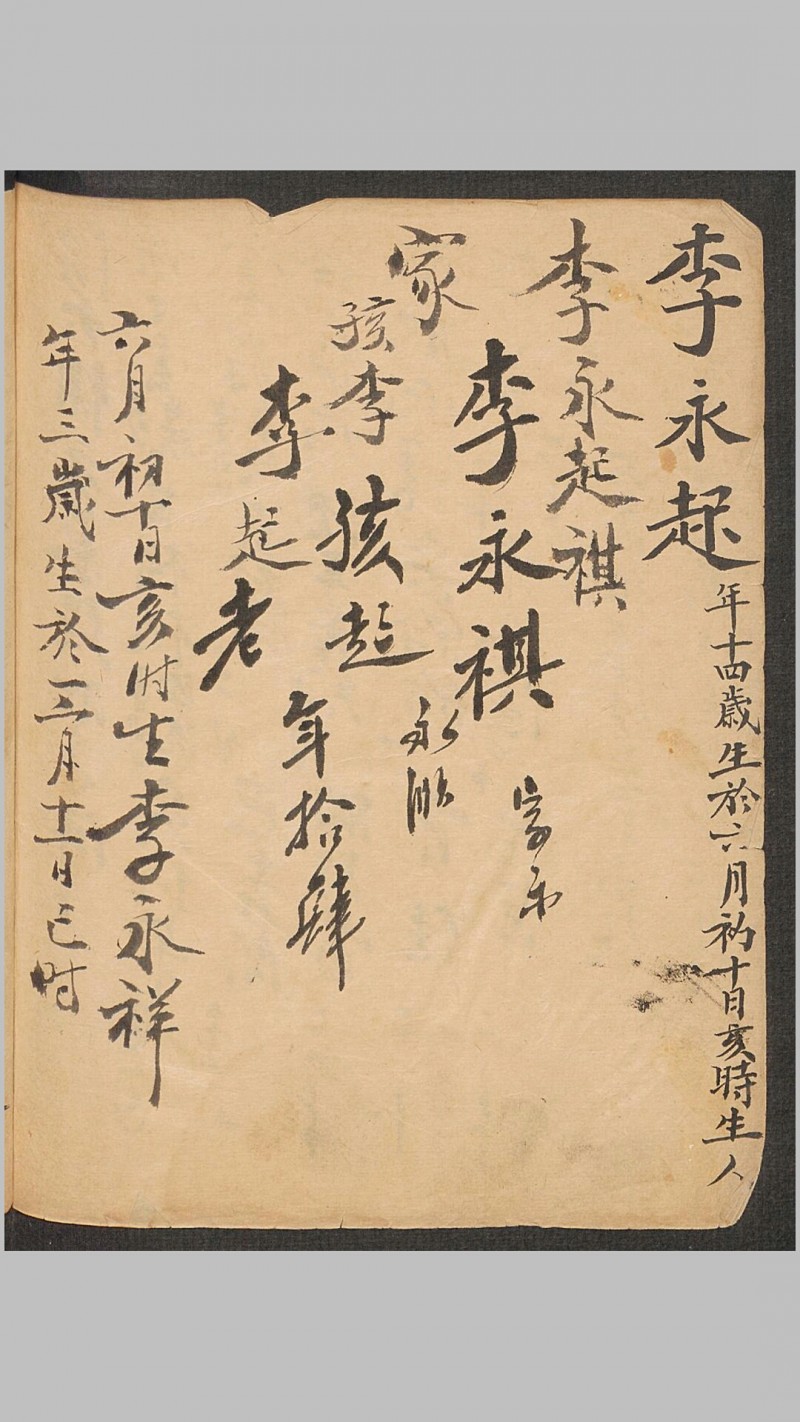 李永起
年十四歲生於六月初十日亥時生人
李永起祺
李永祺
家
永
孩李孩起
年拾肆
李起老
六月初十日亥时生李永祥
年三歲生於三月十一日巳时